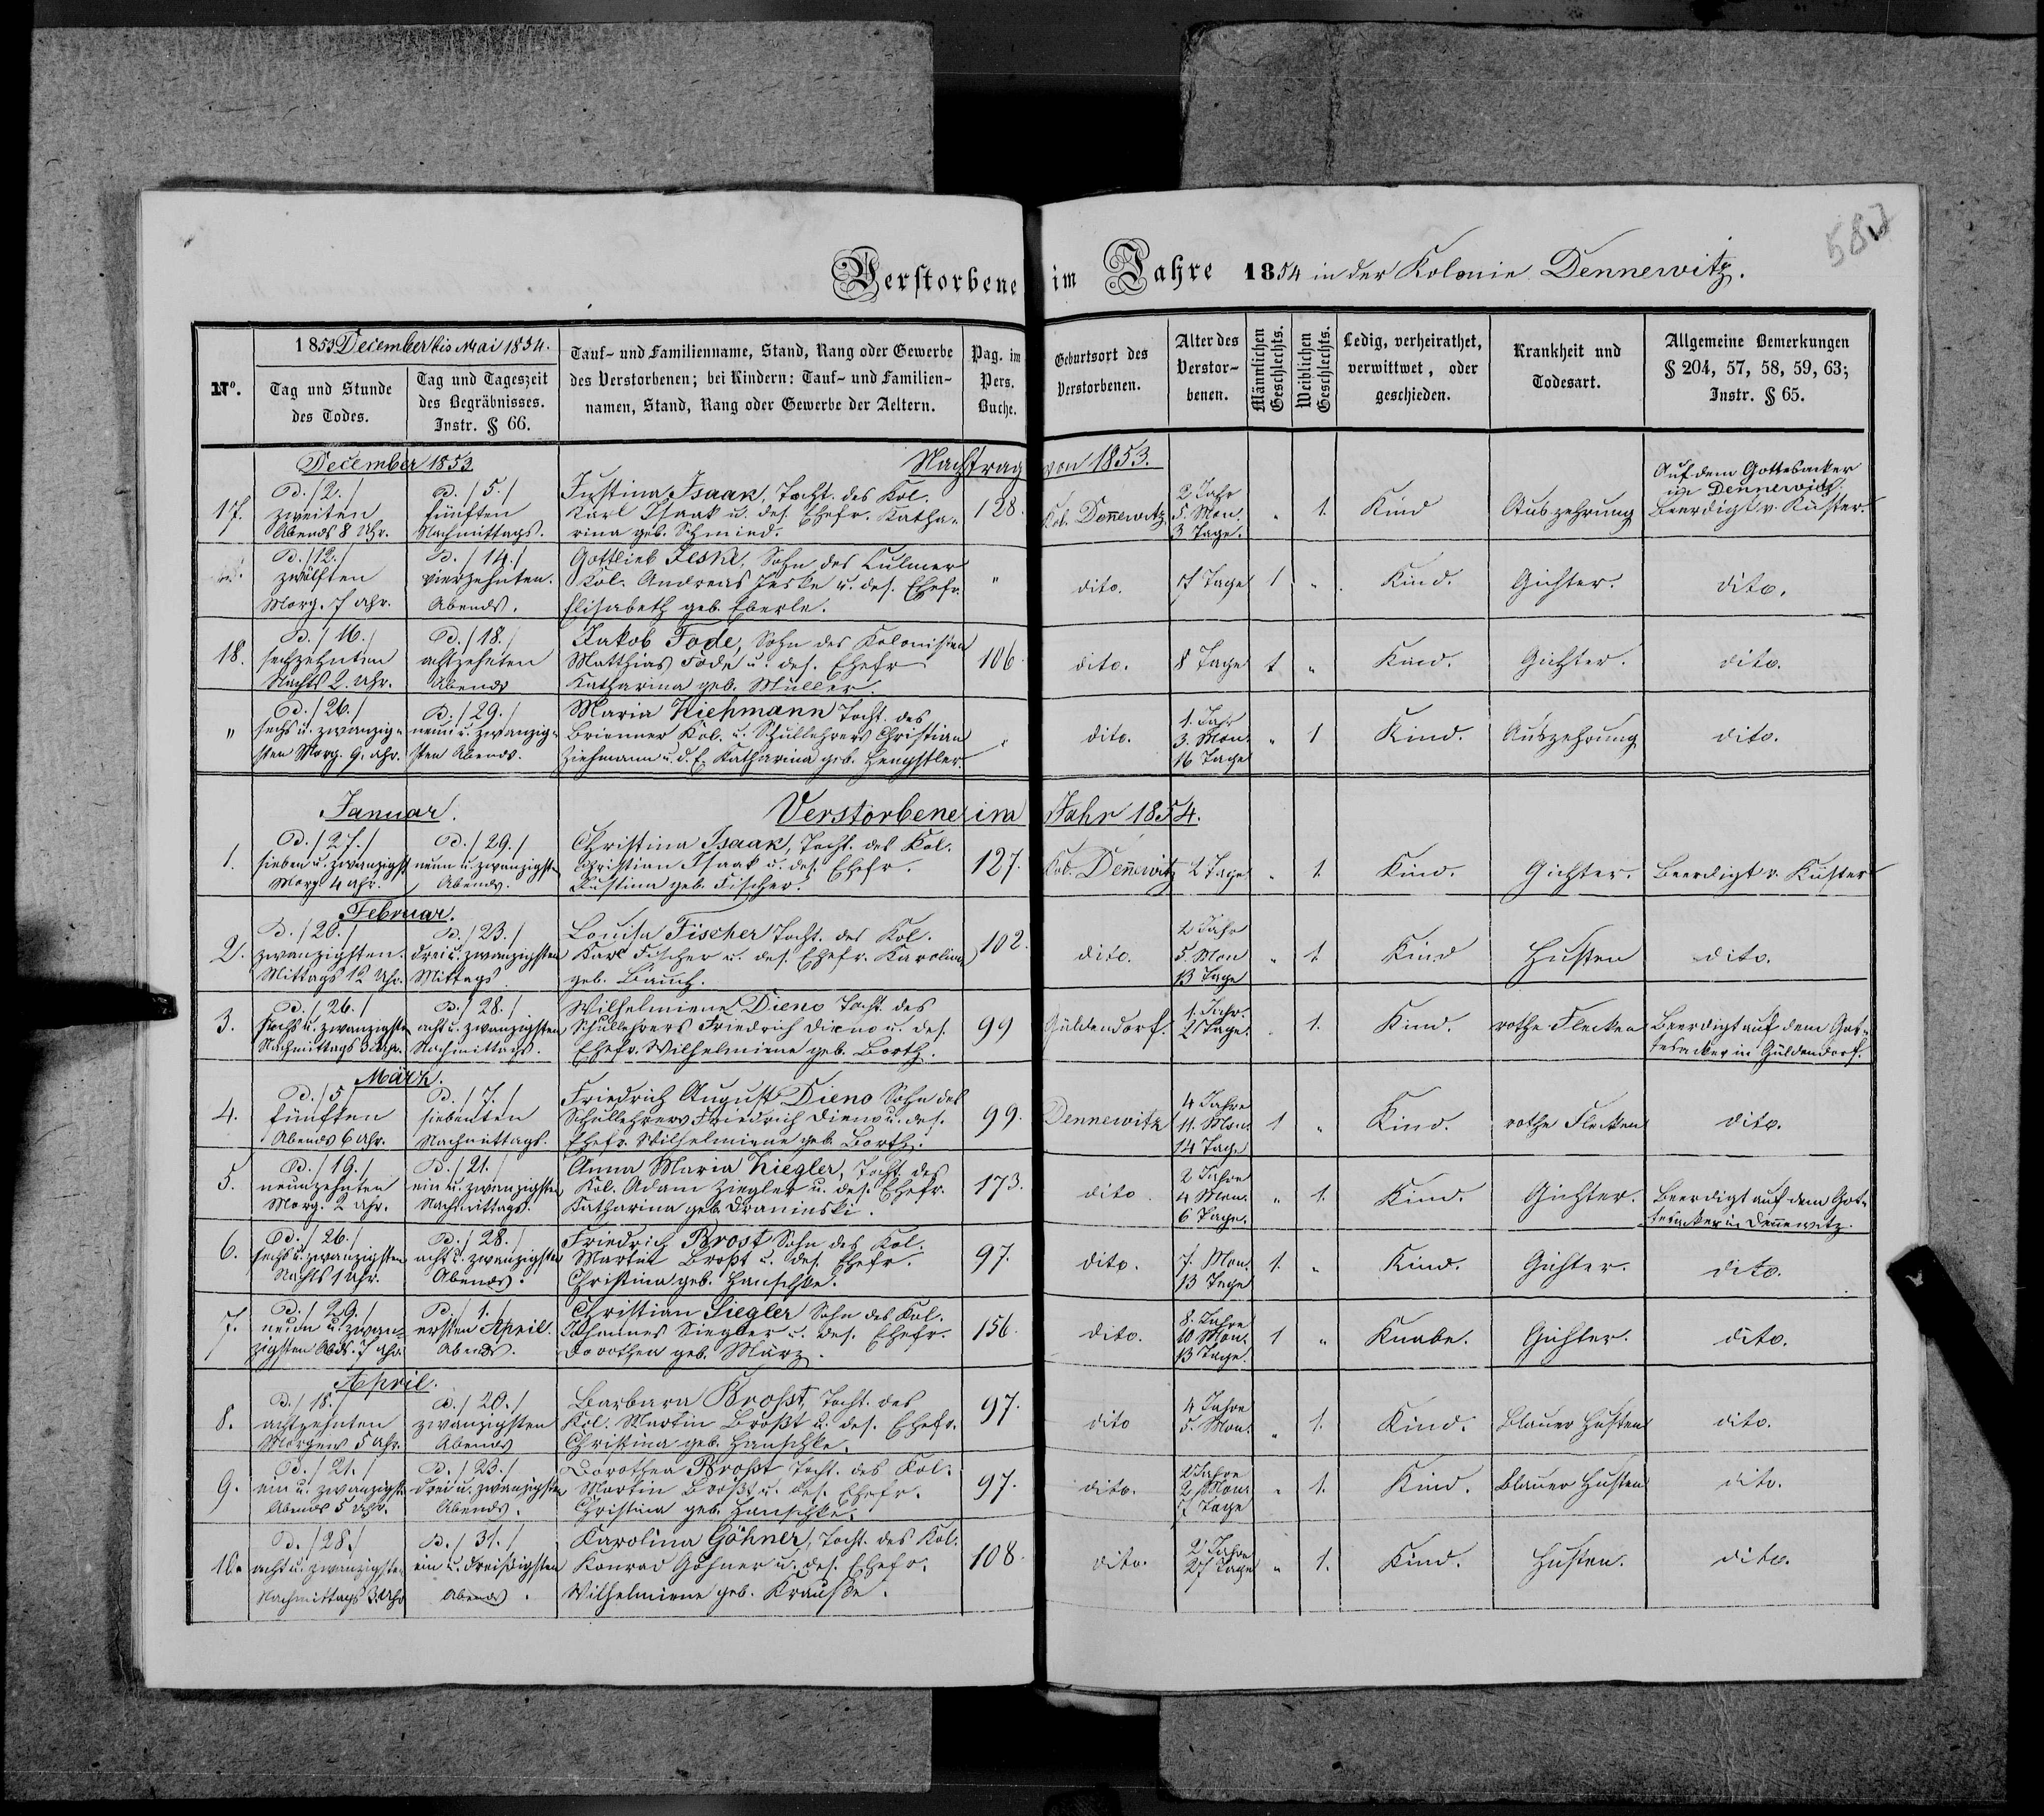 587
Verstorbene im Jahre 1854 in der Kolonie Dennewitz.
N°.
1853 December bis Mai 1854.
Tag und Stunde
des Todes.
Tag und Tageszeit
des Begräbnisses.
Instr. § 66.
Tauf- und Familienname, Stand, Rang oder Gewerbe
des Verstorbenen; bei Kindern: Tauf- und Familien-
namen, Stand, Rang oder Gewerbe der Aeltern.
Pag. im
Pers.
Buche.
Geburtsort des
Verstorbenen.
Alter des
Verstor-
benen.
Männlichen
Geschlechts.
Weiblichen
Geschlechts.
Ledig, verheirathet,
verwittwet, oder
geschieden.
Krankheit und
Todesart.
Allgemeine Bemerkungen
§ 204, 57, 58, 59, 63;
Instr. § 65.
December 1853
Nachtrag von 1853.
17.
D. /2./
zweiten
Abends 8 Uhr.
D. /5./
fünften
Nachmittags.
Justina Isaak, Tocht. des Kol.
Karl Isaak u. des. Ehefr. Katha-
rina geb. Schmied.
128.
Kol. Deñewitz
2 Jahr
5. Mon.
3 Tage.
"
1.
Kind
Auszehrung
Auf dem Gottesacker
in Dennewitz
Beerdigt v. Küster.
D. /12./
zwölften
Morg. 7 Uhr.
D. /14./
vierzehnten.
Abends.
Gottlieb Jeske, Sohn des Culmer
Kol. Andreas Jeske u. des. Ehefr.
Elisabeth geb. Eberle.
"
dito.
7 Tage
1
"
Kind.
Gichter.
dito.
18.
D. /16./
sechzehnten
Nachts 2. Uhr.
D. /18./
achtzehnten
Abends
Jakob Fode, Sohn des Kolonisten
Matthias Fode u. des. Ehefr
Katharina geb. Müller.
106.
dito.
8 Tage
1
"
Kind.
Gichter.
dito.
"
D. /26./
sechs u. zwanzig-
sten Morg. 9. Uhr.
D. /29./
neun u. zwanzig-
sten Abends.
Maria Ziehmann Tocht. des
Brienner Kol. u. Schullehrers Christian
Ziehmann u. d. E. Katharina geb. Hengstler.
"
dito.
1. Jahr
3. Mon.
16 Tage
"
1
Kind.
Auszehrung
dito.
Januar.
Verstorbene im Jahr 1854.
1.
D. /27./
sieben u. zwanzigst
Morg. 4 Uhr.
D. /29./
neun u. zwanzigsten
Abends.
Christina Isaak, Tocht. des Kol.
Christian Isaak u. des. Ehefr.
Justina geb. Fischer.
127.
Kol. Deñewitz
2 Tage
"
1.
Kind.
Gichter.
Beerdigt v. Küster
Februar.
2.
D. /20./
zwanzigsten.
Mittags 12 Uhr.
D. /23./
drei u. zwanzigsten
Mittags
Louisa Fischer Tocht. des Kol.
Karl Fischer u. des. Ehefr. Karolina
geb. Bauch.
102.
dito.
2 Jahr
5. Mon
13 Tage
"
1.
Kind
Husten
dito.
3.
D. /26./
sechs u. zwanzigsten
Nachmittags 3 Uhr.
D. /28./
acht u. zwanzigsten
Nachmittags.
Wilhelmiene Dieno Tocht. des
Schullehrers Friedrich Dieno u. des.
Ehefr. Wilhelmiene geb. Borth.
99
Güldendorf.
1. Jahr.
2 Tage.
"
1.
Kind.
rothe Flecken
Beerdigt auf dem Got-
tesacker in Güldendorf.
März.
4.
D. /5/
fünften
Abends 6 Uhr.
D. /7./
siebenten
Nachmittags.
Friedrich August Dieno Sohn des
Schullehrers Friedrich Dieno u. des.
Ehefr. Wilhelmiene geb. Borth.
99.
Dennewitz
4 Jahre
11. Mon.
14 Tage
1
"
Kind.
rothe Flecken
dito.
5.
D. /19./
neunzehnten
Morg. 2 Uhr.
D. /21./
ein u. zwanzigsten
Nachmittags.
Anna Maria Ziegler, Tocht. des
Kol. Adam Ziegler u. des. Ehefr.
Katharina geb. Draninski.
173.
dito.
2 Jahre
4 Mon.
6 Tage.
"
1.
Kind.
Gichter.
Beerdigt auf dem Got-
tesacker in Deñewitz.
6.
D. /26./
sechs u. zwanzigsten
Nachts 1 Uhr.
D. /28./
acht u. zwanzigsten
Abends.
Friedrich Brost Sohn des Kol.
Martin Broßt u. des. Ehefr.
Christina geb. Hanschke.
97.
dito.
7. Mon.
13 Tage
1.
"
Kind.
Gichter.
dito.
7.
D. /29./
neun u. zwan-
zigsten Abds. 7 Uhr.
D. /1./
ersten April.
Abends.
Christian Siegler Sohn des Kol.
Johannes Siegler u. des. Ehefr.
Dorothea geb. März.
156.
dito.
8. Jahre
10. Mon.
13 Tage.
1
"
Knabe.
Gichter.
dito.
April.
8.
D. /18./
achtzehnten
Morgens 5 Uhr.
D. /20./
zwanzigsten
Abends
Barbara Broßt, Tocht. des
Kol. Martin Broßt u. des. Ehefr.
Christina geb. Hanschke.
97.
dito
4 Jahre
5. Mon.
"
1.
Kind.
Blauer Husten
dito.
9.
D. /21./
ein u. zwanzigsten
Abends 5 Uhr.
D. /23./
drei u. zwanzigsten
Abends.
Dorothea Broßt Tocht. des Kol.
Martin Broßt u. des. Ehefr.
Christina geb. Hanschke.
97.
dito.
2 Jahre
2 Mon.
7 Tage
"
1.
Kind.
Blauer Husten
dito.
10.
D. /28./
acht u. zwanzigsten
Nachmittags 3 Uhr
D. /31./
ein u. dreißigsten
Abends.
Karolina Göhner, Tocht. des Kol.
Konrad Göhner u. des. Ehefr.
Wilhelmiene geb. Krauße.
108.
dito.
2 Jahre
27 Tage
"
1.
Kind.
Husten.
dito.